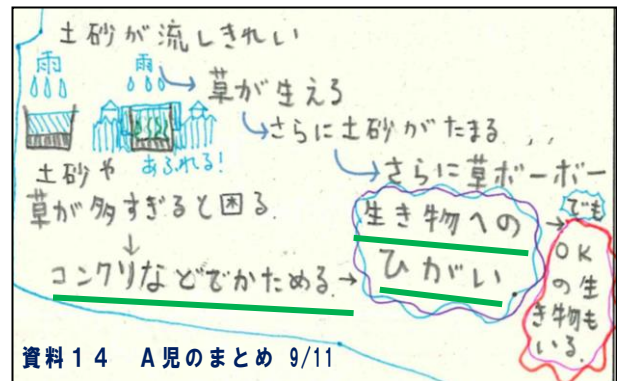 土砂が流しきれい
雨
雨
草が生えろ
さらに土砂がたまる
さらに草ボーボー
あふれる!
土砂や
草が多すぎると困る
コンクリなどでかためる
生き物への
ひがい
でも
OK
の生
き物も
いる
資料14 A児のまとめ 9/11